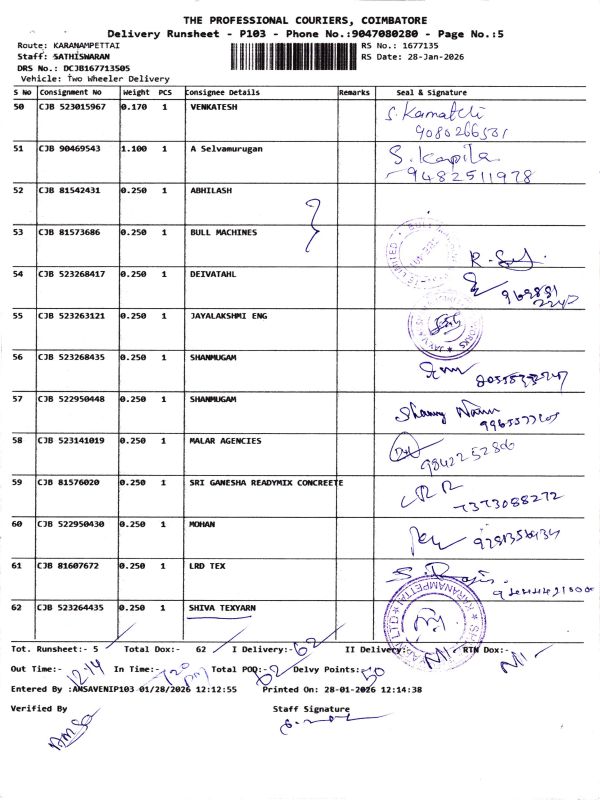 THE PROFESSIONAL COURIERS, COIMBATORE
Delivery Runsheet - P103 - Phone No.:9047080280 - Page No.:5
Route: KARANAMPETTAI RS No.: 1677135
Staff: SATHISWARAN RS Date: 28-Jan-2026
DRS No.: DCJB167713505
Vehicle: Two Wheeler Delivery
S No Consignment No Weight PCS Consignee Details Remarks Seal & Signature
50 CJB 523015967 0.170 1 VENKATESH S. Kamatchi
9080266531
51 CJB 90469543 1.100 1 A Selvamurugan S. Kapila
9482511978
52 CJB 81542431 0.250 1 ABHILASH
53 CJB 81573686 0.250 1 BULL MACHINES
54 CJB 523268417 0.250 1 DEIVATAHL
55 CJB 523263121 0.250 1 JAYALAKSHMI ENG
56 CJB 523268435 0.250 1 SHANMUGAM
57 CJB 522950448 0.250 1 SHANMUGAM
58 CJB 523141019 0.250 1 MALAR AGENCIES
9842252806
59 CJB 81576020 0.250 1 SRI GANESHA READYMIX CONCREETE
7373088272
60 CJB 522950430 0.250 1 MOHAN
61 CJB 81607672 0.250 1 LRD TEX
62 CJB 523264435 0.250 1 SHIVA TEXYARN
KARANAMPETTAI
Tot. Runsheet:- 5 Total Dox:- 62 I Delivery:- 62 II Delivery:- Nil RTN Dox:- Nil
Out Time:- 12.14 In Time:- Total POD:- 62 Delvy Points:- 50
Entered By :AMSAVENIP103 01/28/2026 12:12:55 Printed On: 28-01-2026 12:14:38
Verified By Staff Signature